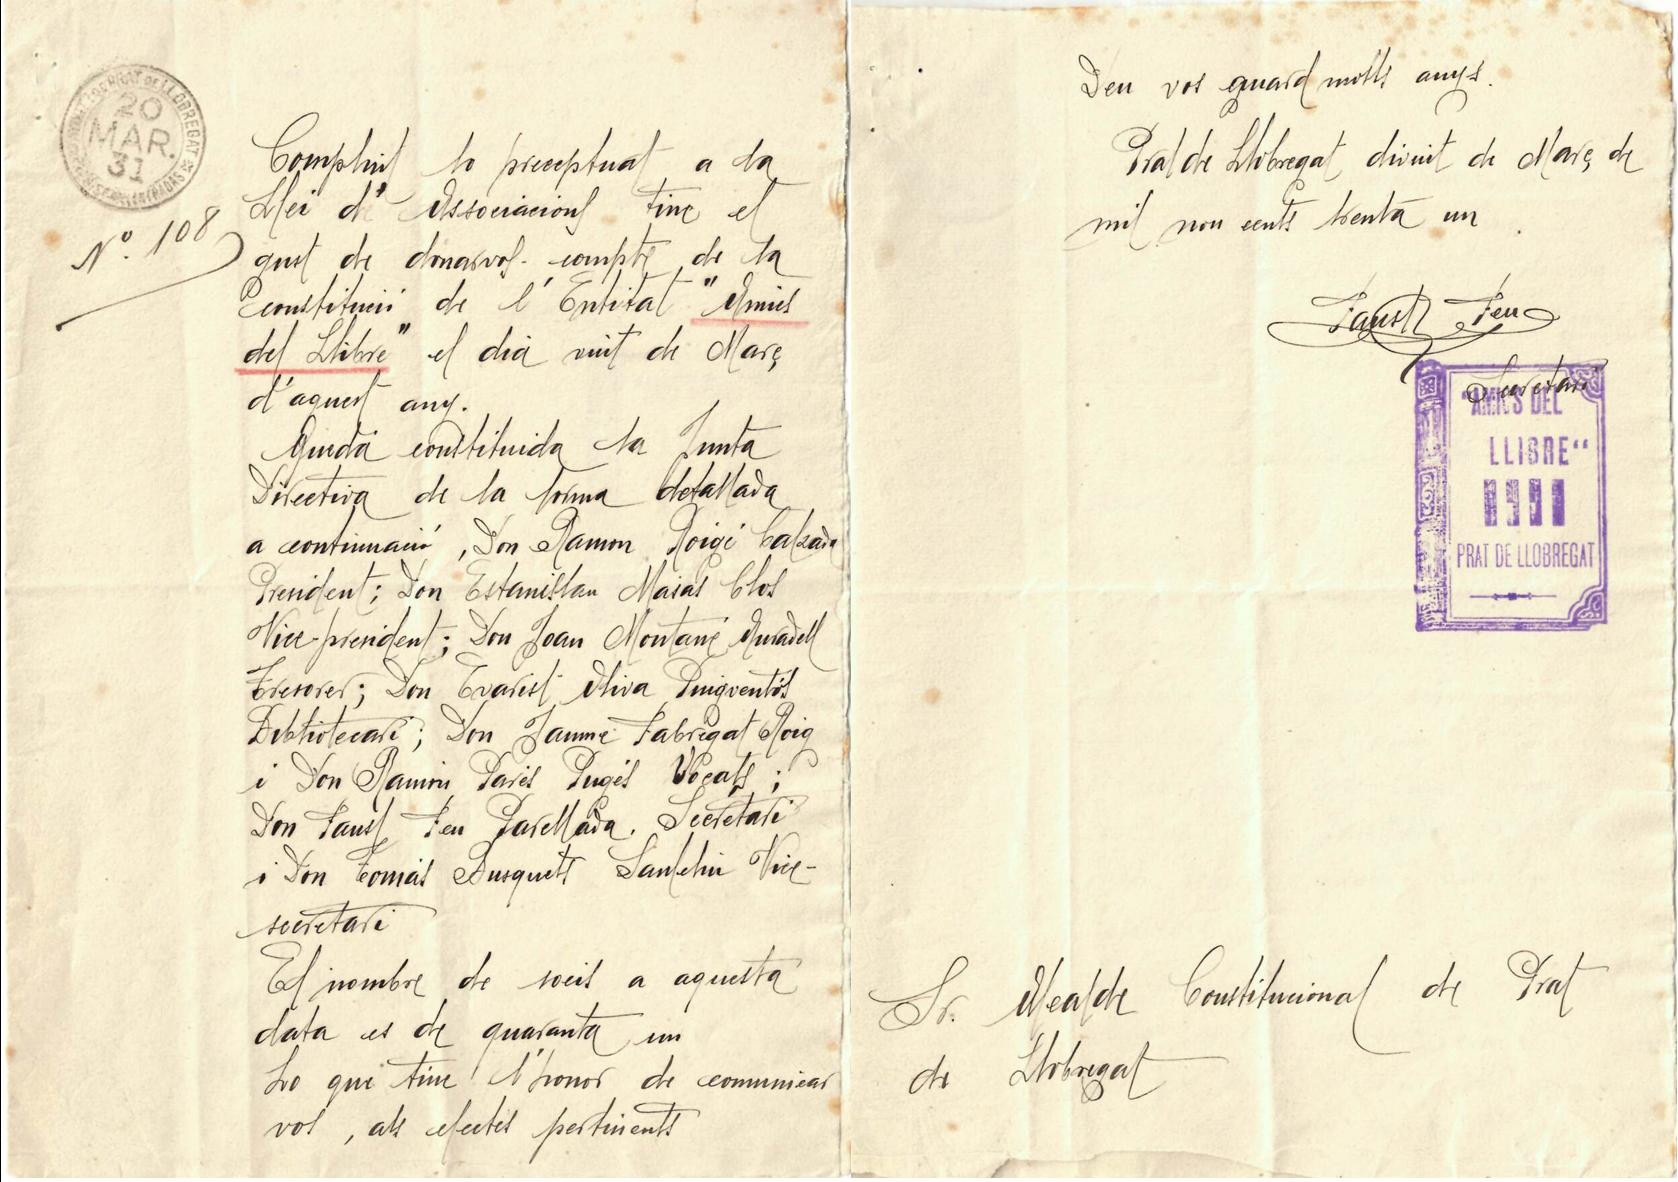 PRAT DE LLOBREGAT
20
MAR.
31
ENTRADAS
Nº. 108
Complint lo preceptuat a la
Llei d' Associacions tinc el
gust de donarvos compte de la
constitució de l'Entitat "Amics
del Llibre" el dia vuit de Març
d'aquest any.
Queda constituida la Junta
Directiva de la forma detallada
a continuació, Don Ramon Roigé Calzada
President; Don Estanislau Masas Clos
Vice-president; Don Joan Montané Muradell
Tresorer; Don Evarist Oliva Puigventós
Bibliotecari; Don Jaume Fabregat Roig
i Don Ramon Parés Pugés Vocals;
Don Faust Feu Parellada. Secretari
i Don Tomás Busquets Vice-
secretari
El nombre de socis a aquesta
data es de quaranta un
Lo que tinc l'honor de comunicar
vos, als efectes pertinents
Deu vos guard molts anys.
Prat de Llobregat divuit de Març de
mil nou cents trenta un
Faust Feu
Secretari
"AMICS DEL
LLIBRE"
1931
PRAT DE LLOBREGAT
Sr. Alcalde Constitucional de Prat
de Llobregat